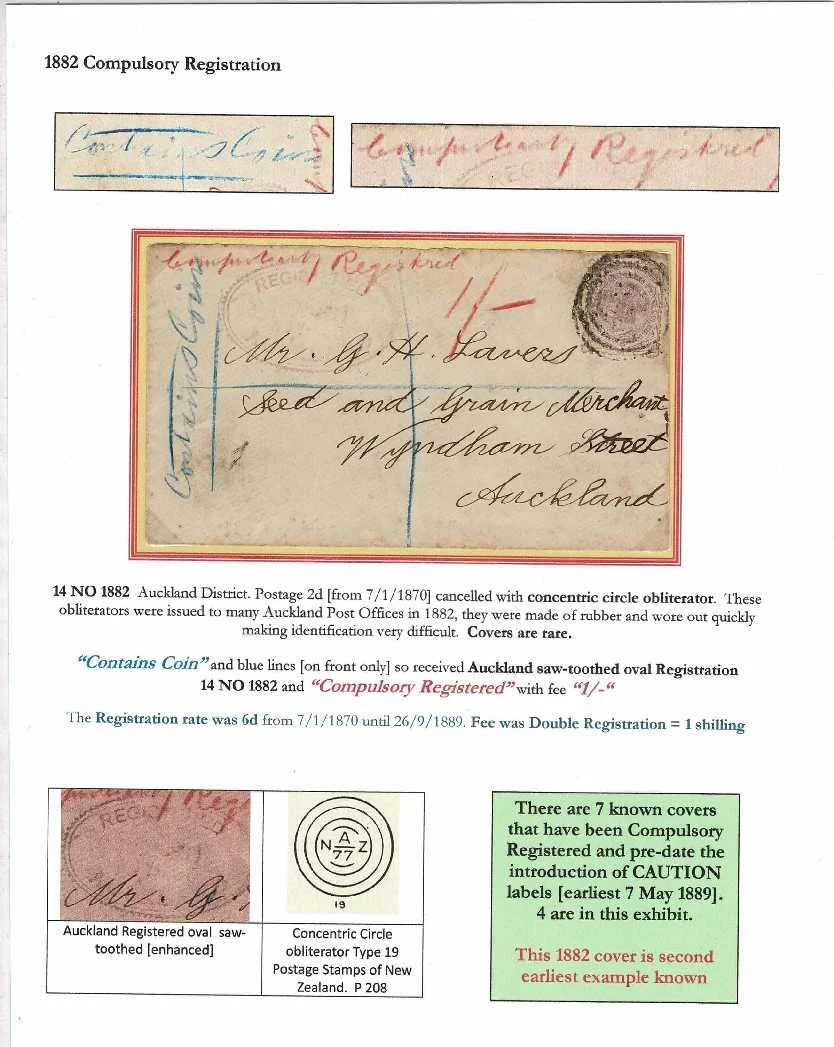 1882 Compulsory Registration
Contains Coin
Compulsarly Registred
Compulsarly Registred
REGIS
1/-
Contains Coin
Mr. G. H. Lavers
Seed and Grain Merchant
Wyndham Street
Auckland
14 NO 1882 Auckland District. Postage 2d [from 7/1/1870] cancelled with concentric circle obliterator. These
obliterators were issued to many Auckland Post Offices in 1882, they were made of rubber and wore out quickly
making identification very difficult. Covers are rare.
“Contains Coin” and blue lines [on front only] so received Auckland saw-toothed oval Registration
14 NO 1882 and “Compulsory Registered” with fee “1/-“
The Registration rate was 6d from 7/1/1870 until 26/9/1889. Fee was Double Registration = 1 shilling
REGI
Mr. G.
Auckland Registered oval saw-
toothed [enhanced]
A
N Z
77
19
Concentric Circle
obliterator Type 19
Postage Stamps of New
Zealand. P 208
There are 7 known covers
that have been Compulsory
Registered and pre-date the
introduction of CAUTION
labels [earliest 7 May 1889].
4 are in this exhibit.
This 1882 cover is second
earliest example known